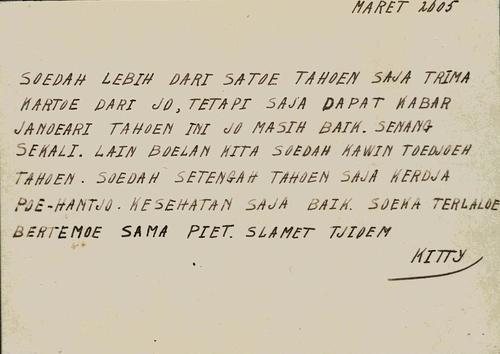 MARET 2005
SOEDAH LEBIH DARI SATOE TAHOEN SAJA TRIMA
KARTOE DARI JO, TETAPI SAJA DAPAT KABAR
JANOEARI TAHOEN INI JO MASIH BAIK. SENANG
SEKALI. LAIN BOELAN KITA SOEDAH KAWIN TOEDJOEH
TAHOEN. SOEDAH SETENGAH TAHOEN SAJA KERDJA
POE-HANTJO. KESEHATAN SAJA BAIK. SOEKA TERLALOE
BERTEMOE SAMA PIET. SLAMET TJIOEM
KITTY